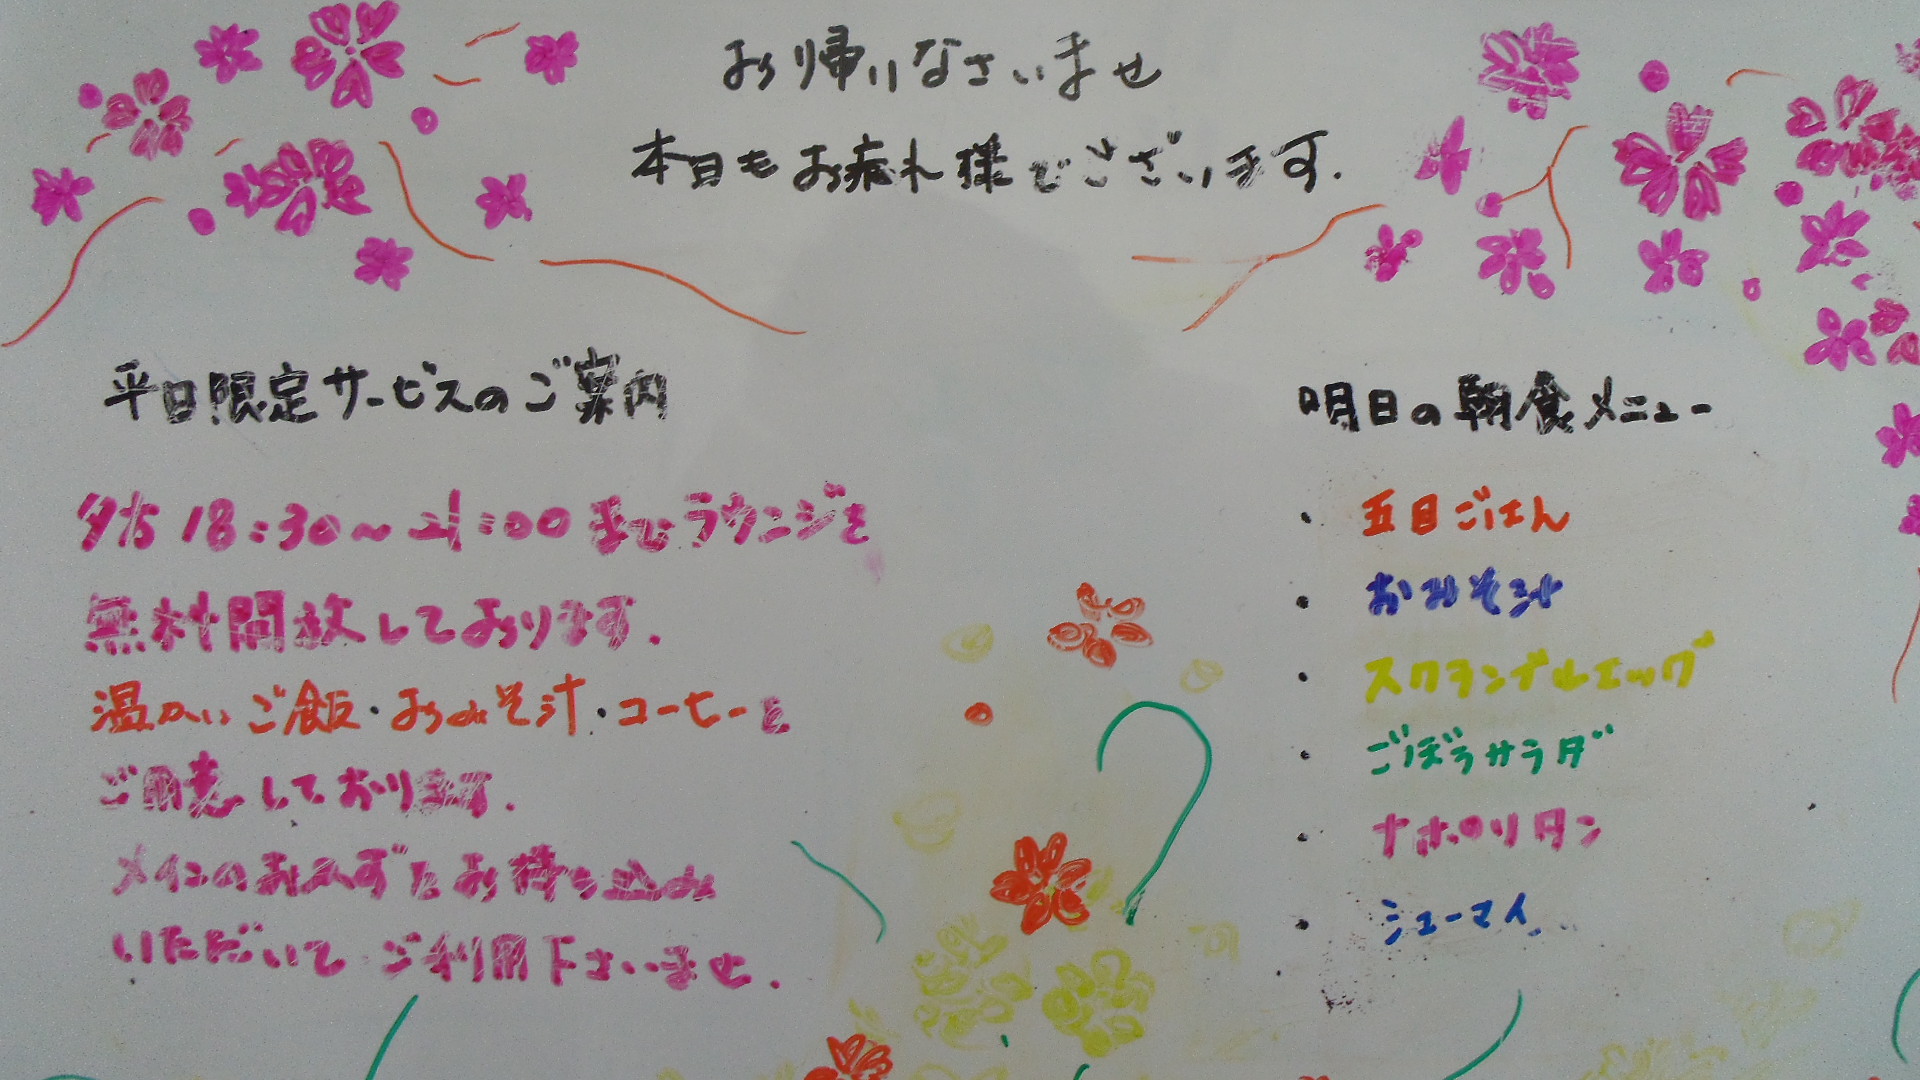 お帰りなさいませ
本日もお疲れ様でございます.
平日限定サービスのご案内
夕方18:30～21:00までラウンジを
無料開放しております.
温かいご飯・おみそ汁・コーヒーを
ご用意しております.
メインのおかずをお持ち込み
いただいてご利用下さいませ.
明日の朝食メニュー
・五目ごはん
・おみそ汁
・スクランブルエッグ
・ごぼうサラダ
・ナポリタン
・シューマイ